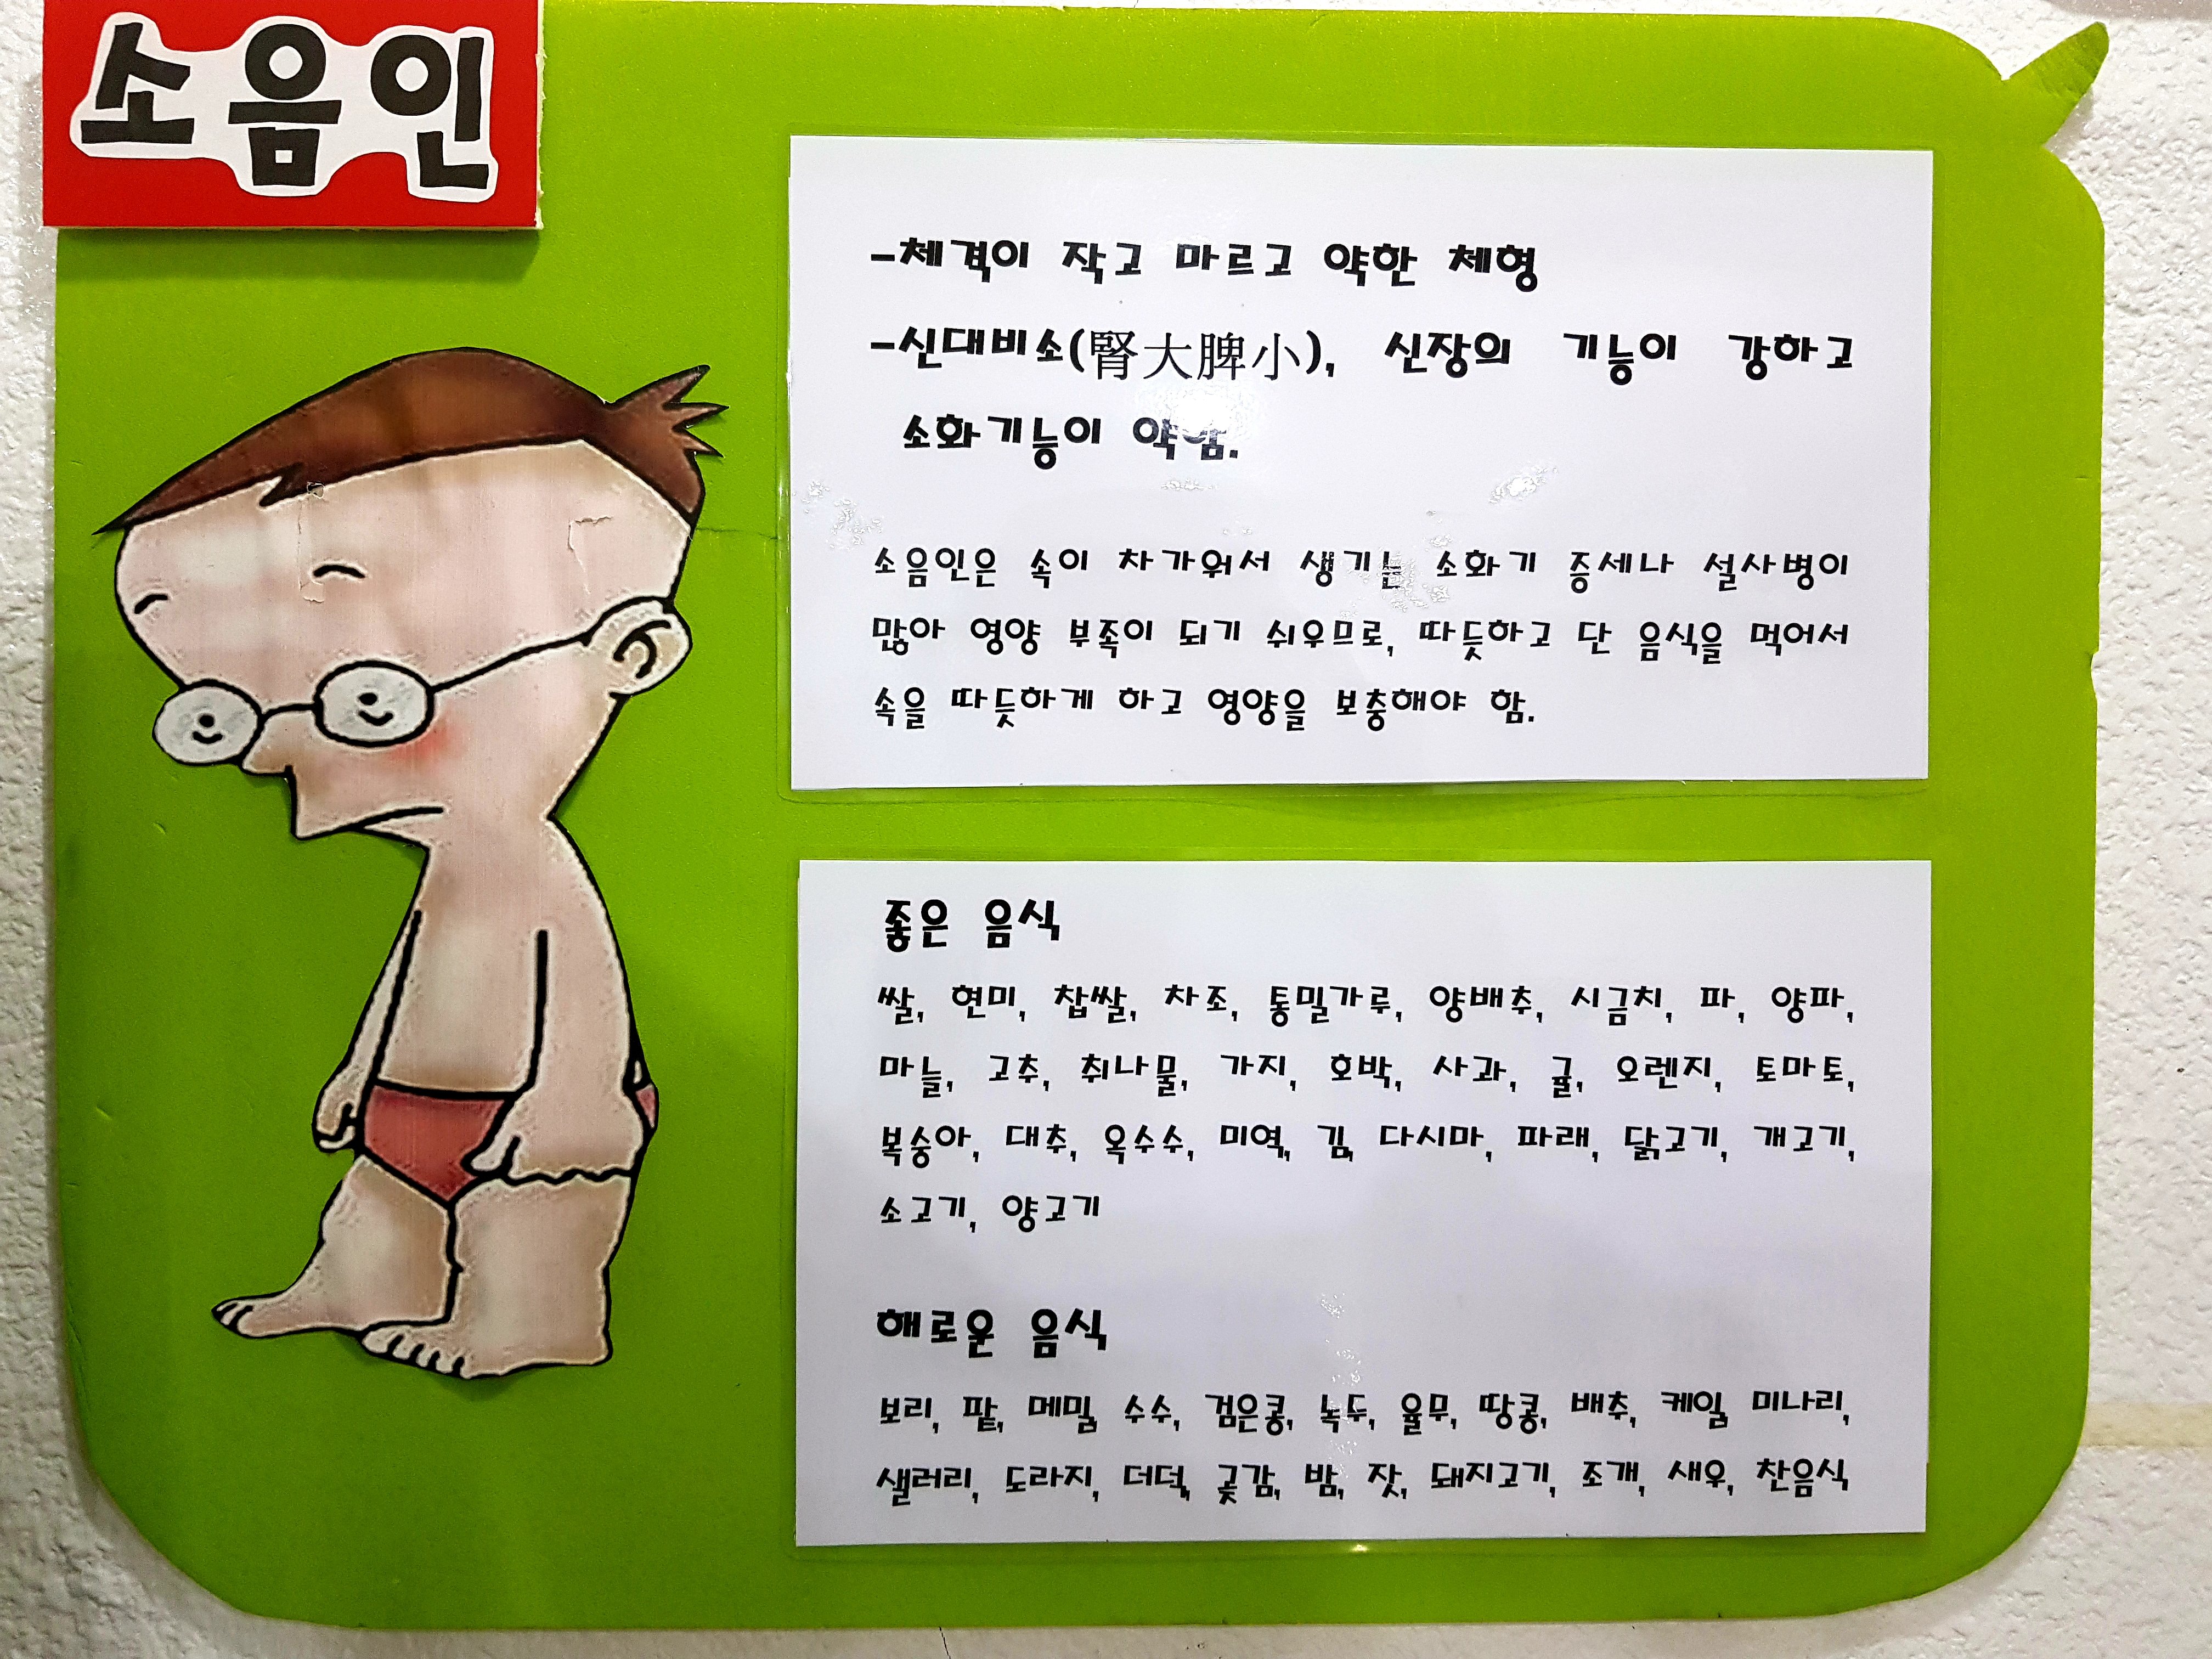 소음인
-체격이 작고 마르고 약한 체형
-신대비소(腎大脾小), 신장의 기능이 강하고
소화기능이 약함.
소음인은 속이 차가워서 생기는 소화기 증세나 설사병이
많아 영양 부족이 되기 쉬우므로, 따듯하고 단 음식을 먹어서
속을 따듯하게 하고 영양을 보충해야 함.
좋은 음식
쌀, 현미, 찹쌀, 차조, 통밀가루, 양배추, 시금치, 파, 양파,
마늘, 고추, 취나물, 가지, 호박, 사과, 귤, 오렌지, 토마토,
복숭아, 대추, 옥수수, 미역, 김, 다시마, 파래, 닭고기, 개고기,
소고기, 양고기
해로운 음식
보리, 팥, 메밀, 수수, 검은콩, 녹두, 율무, 땅콩, 배추, 케일, 미나리,
샐러리, 도라지, 더덕, 곶감, 밤, 잣, 돼지고기, 조개, 새우, 찬음식